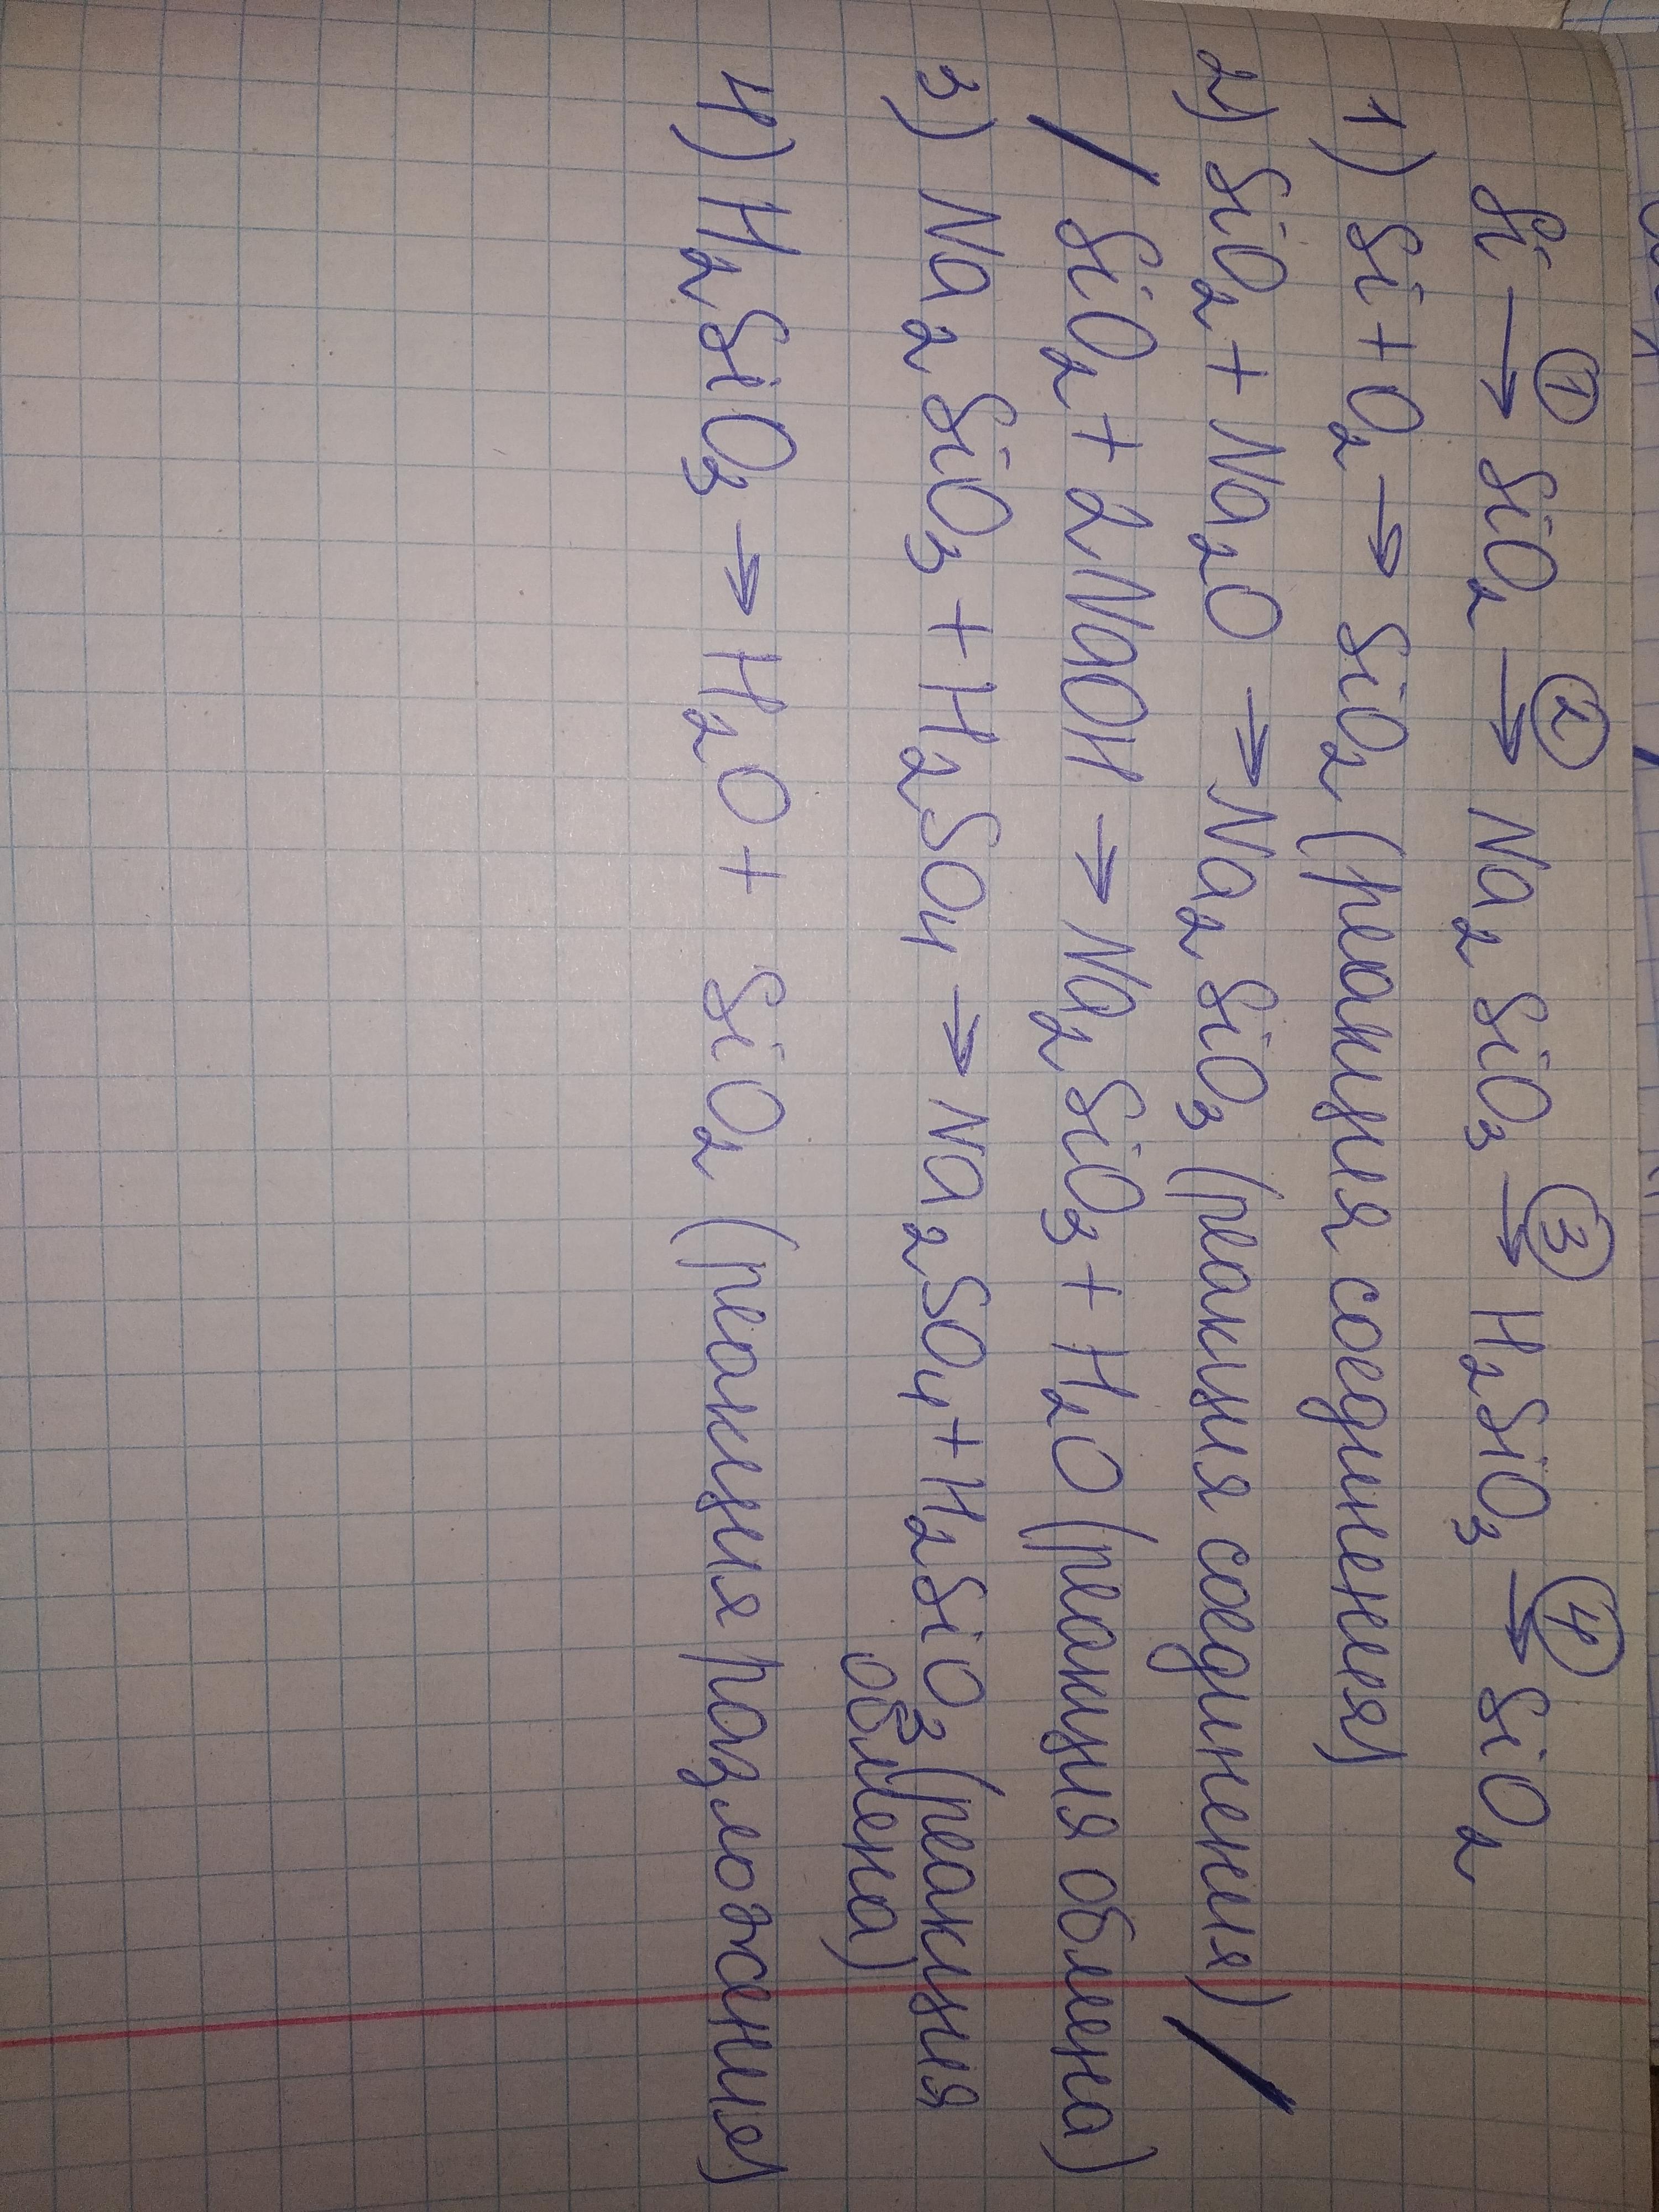 Si →① SiO₂ →② Na₂SiO₃ →③ H₂SiO₃ →④ SiO₂
1) Si + O₂ → SiO₂ (реакция соединения)
2) SiO₂ + Na₂O → Na₂SiO₃ (реакция соединения) /
/ SiO₂ + 2NaOH → Na₂SiO₃ + H₂O (реакция обмена)
3) Na₂SiO₃ + H₂SO₄ → Na₂SO₄ + H₂SiO₃ (реакция
обмена)
4) H₂SiO₃ → H₂O + SiO₂ (реакция разложения)